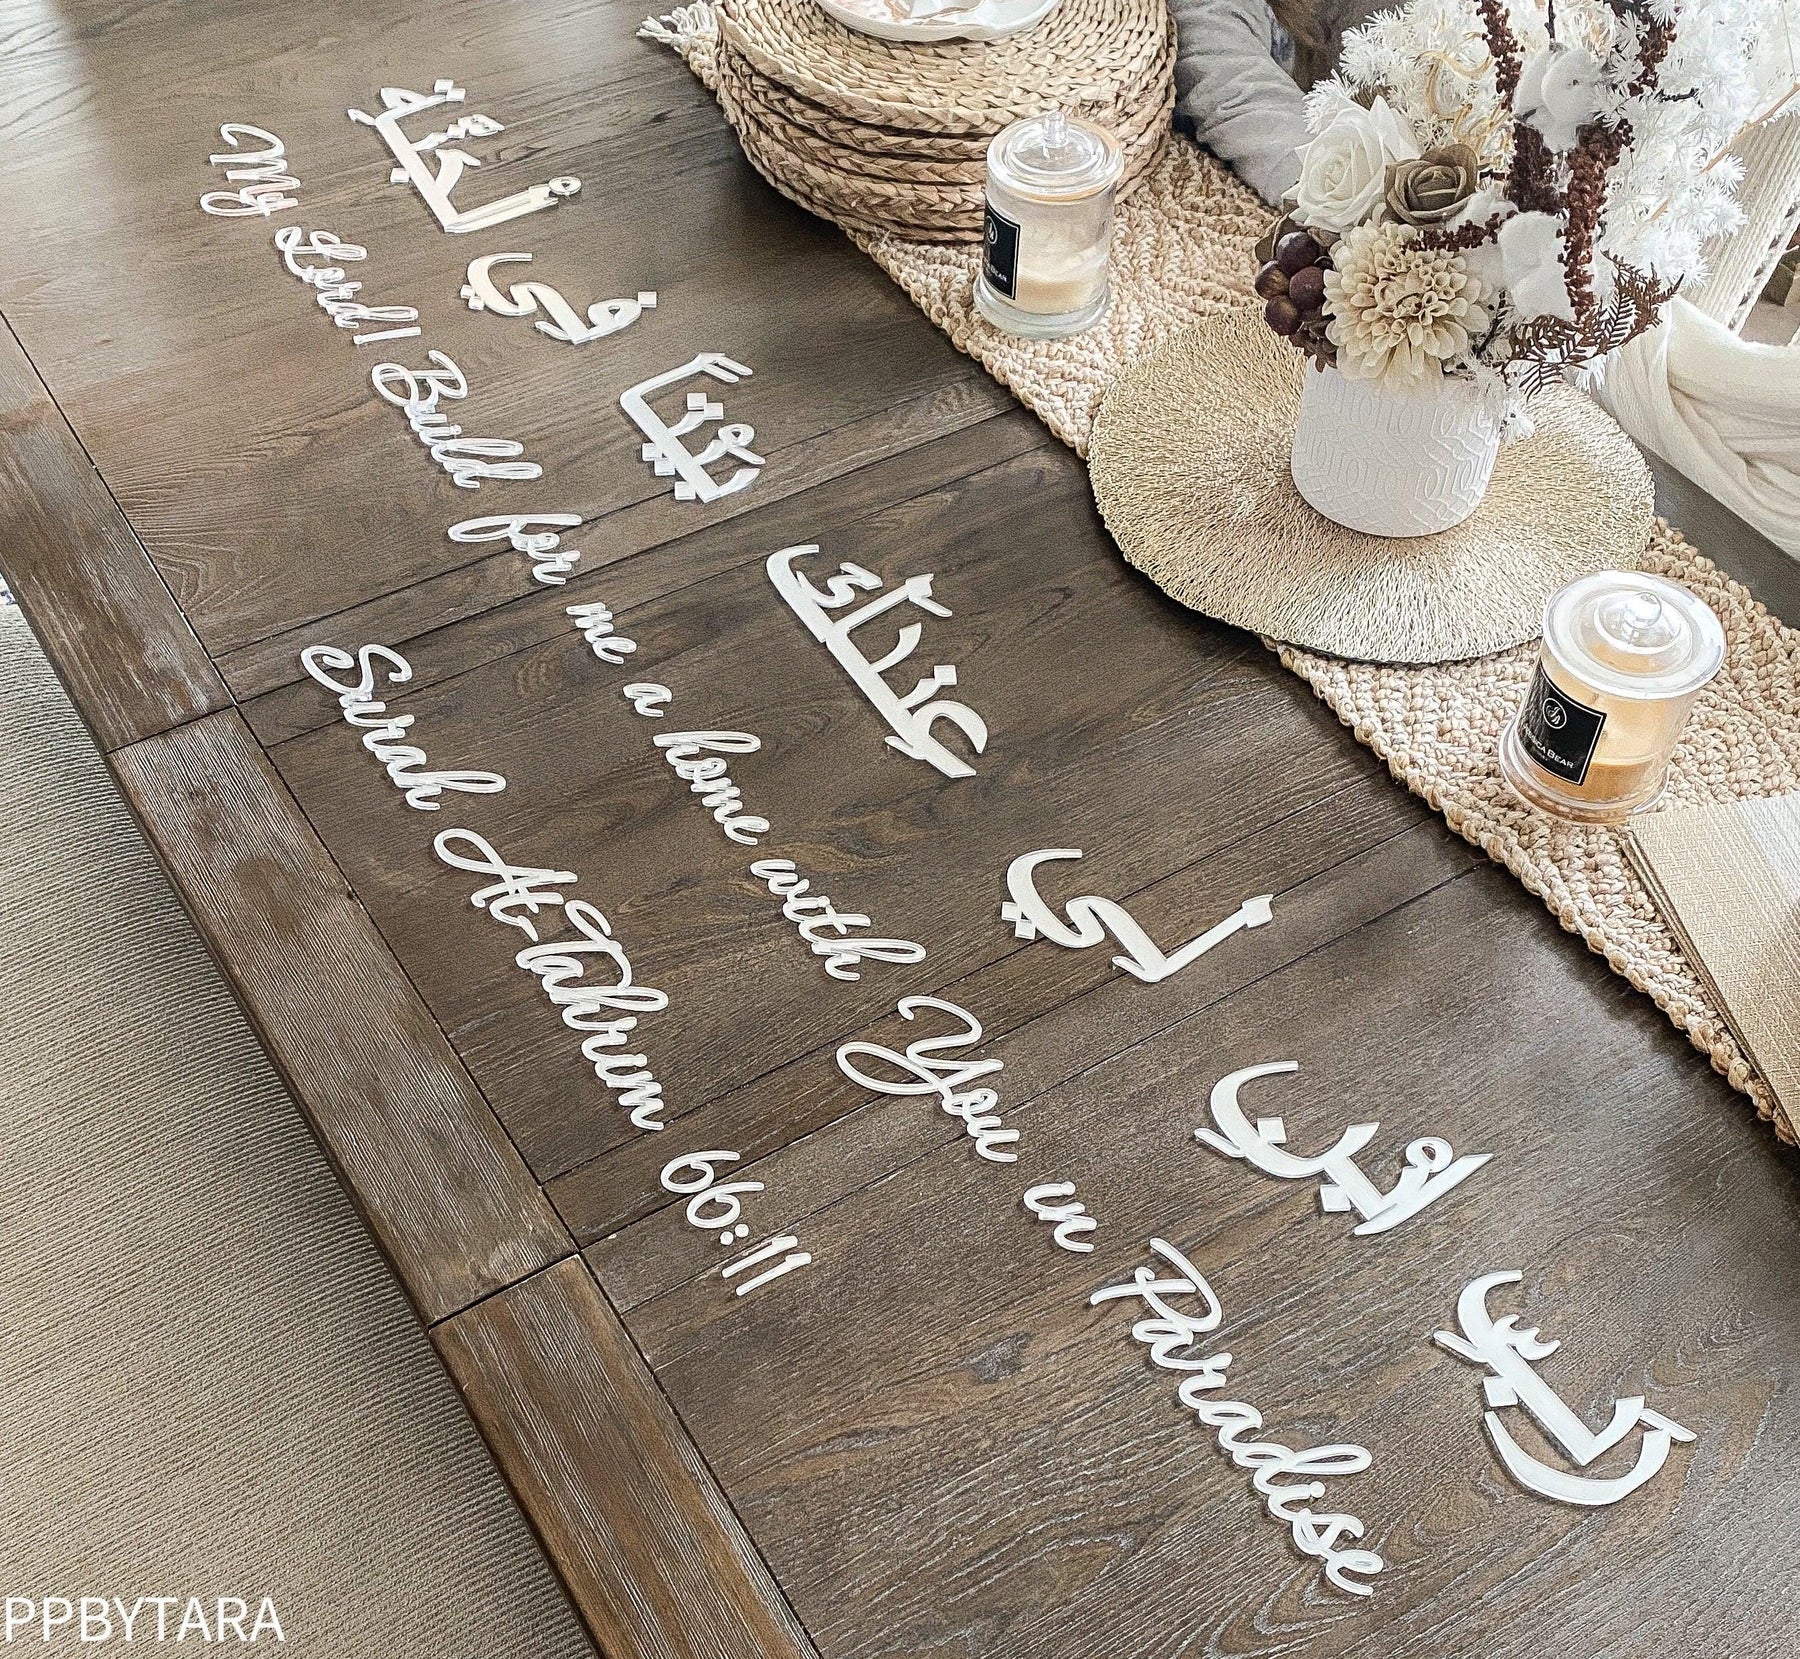 رب ابن لي عندك بيتا في الجنة
My Lord! Build for me a home with You in Paradise
Surah At-Tahrim 66:11
PPBYTARA